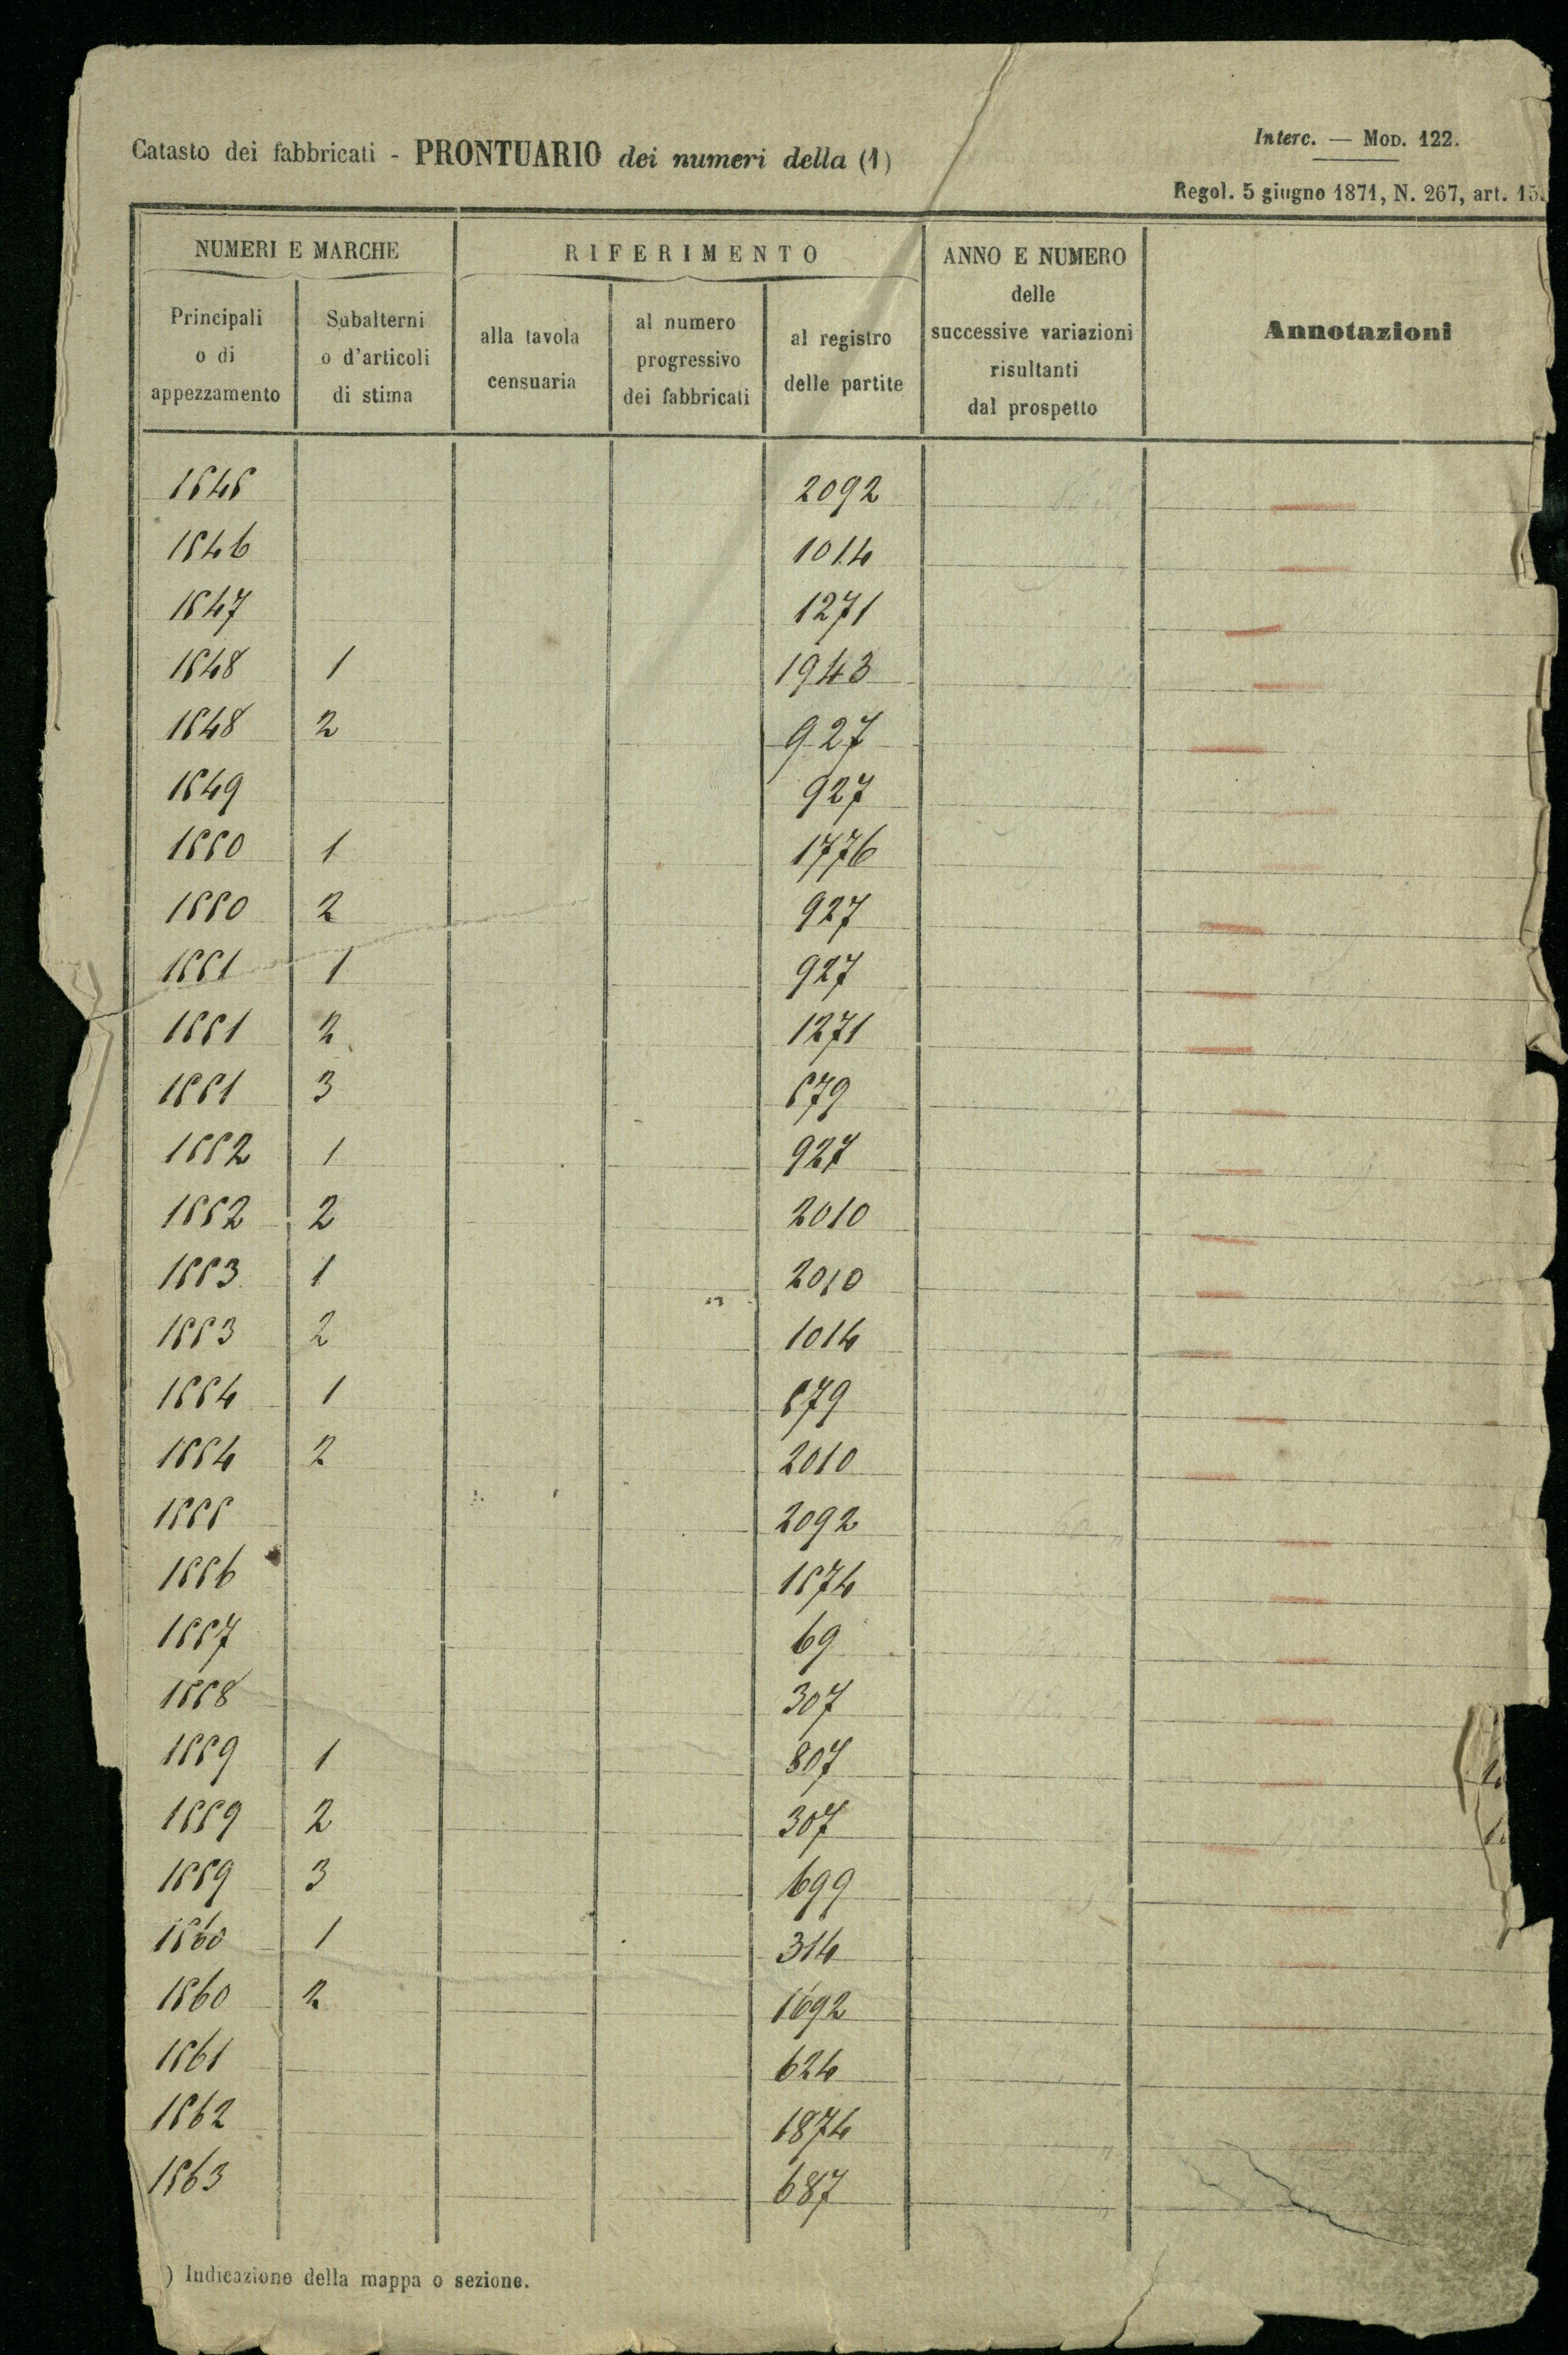 Catasto dei fabbricati - PRONTUARIO dei numeri della (1)
Interc. — Mod. 122.
Regol. 5 giugno 1871, N. 267, art.
NUMERI E MARCHE
Principali
o di
appezzamento
Subalterni
o d'articoli
di stima
RIFERIMENTO
alla tavola
censuaria
al numero
progressivo
dei fabbricati
al registro
delle partite
ANNO E NUMERO
delle
successive variazioni
risultanti
dal prospetto
Annotazioni
1545 2092
1546 1014
1547 1271
1548 1 1943
1548 2 927
1549 927
1550 1 1776
1550 2 927
1551 1 927
1551 2 1271
1551 3 579
1552 1 927
1552 2 2010
1553 1 2010
1553 2 1014
1554 1 579
1554 2 2010
1555 2092
1556 1574
1557 69
1558 307
1559 1 807
1559 2 307
1559 3 699
1560 1 314
1560 2 1692
1561 624
1562 1874
1563 687
) Indicazione della mappa o sezione.